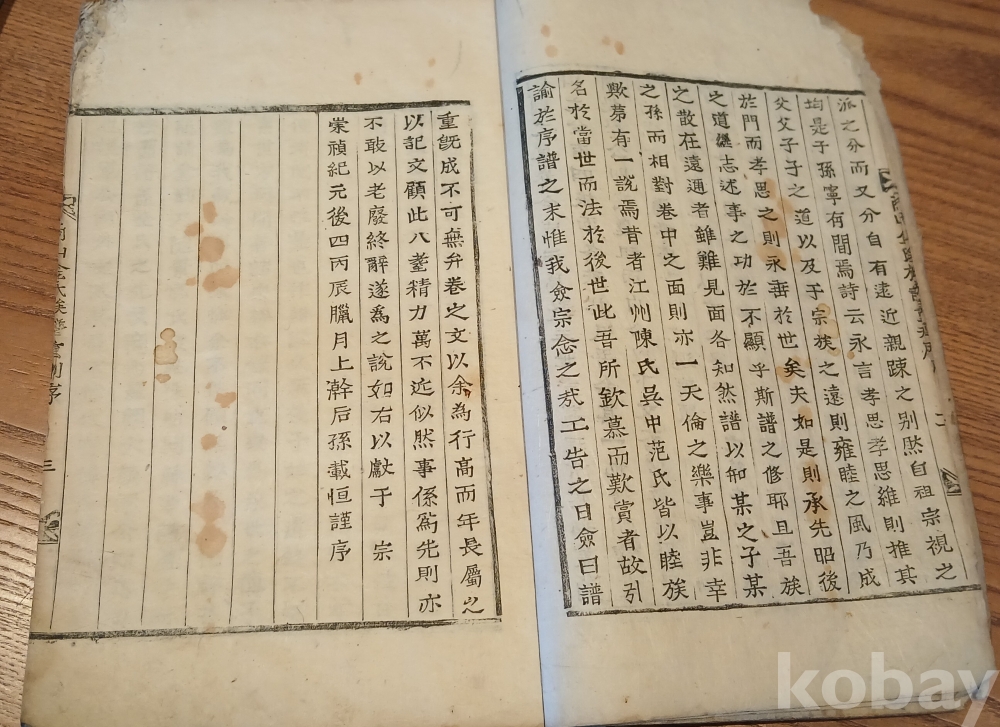 派之分而又分自有逮近親踈之别然自祖宗視之
均是子孫寧有間焉詩云永言孝思孝思維則推其
父父子子之道以及于宗族之遠則雍睦之風乃成
於門而孝思之則永垂於世矣夫如是則承先昭後
之道繼志述事之功於不顯乎斯譜之修耶且吾族
之散在遠邇者雖難見面各知然譜以知某之子某
之孫而相對卷中之面則亦一天倫之樂事豈非幸
歟苐有一說焉昔者江州陳氏吳中范氏皆以睦族
名於當世而法於後世此吾所欽慕而歎賞者故引
諭於序譜之末惟我僉宗念之㢤工告之日僉曰譜
重旣成不可無弁卷之文以余為行高而年長屬之
以記文顧此八耋精力萬不近似然事係爲先則亦
不敢以老廢終辭遂為之說如右以獻于 宗
崇禎紀元後四丙辰臘月上澣后孫載恒謹序
序 三
二
kobay